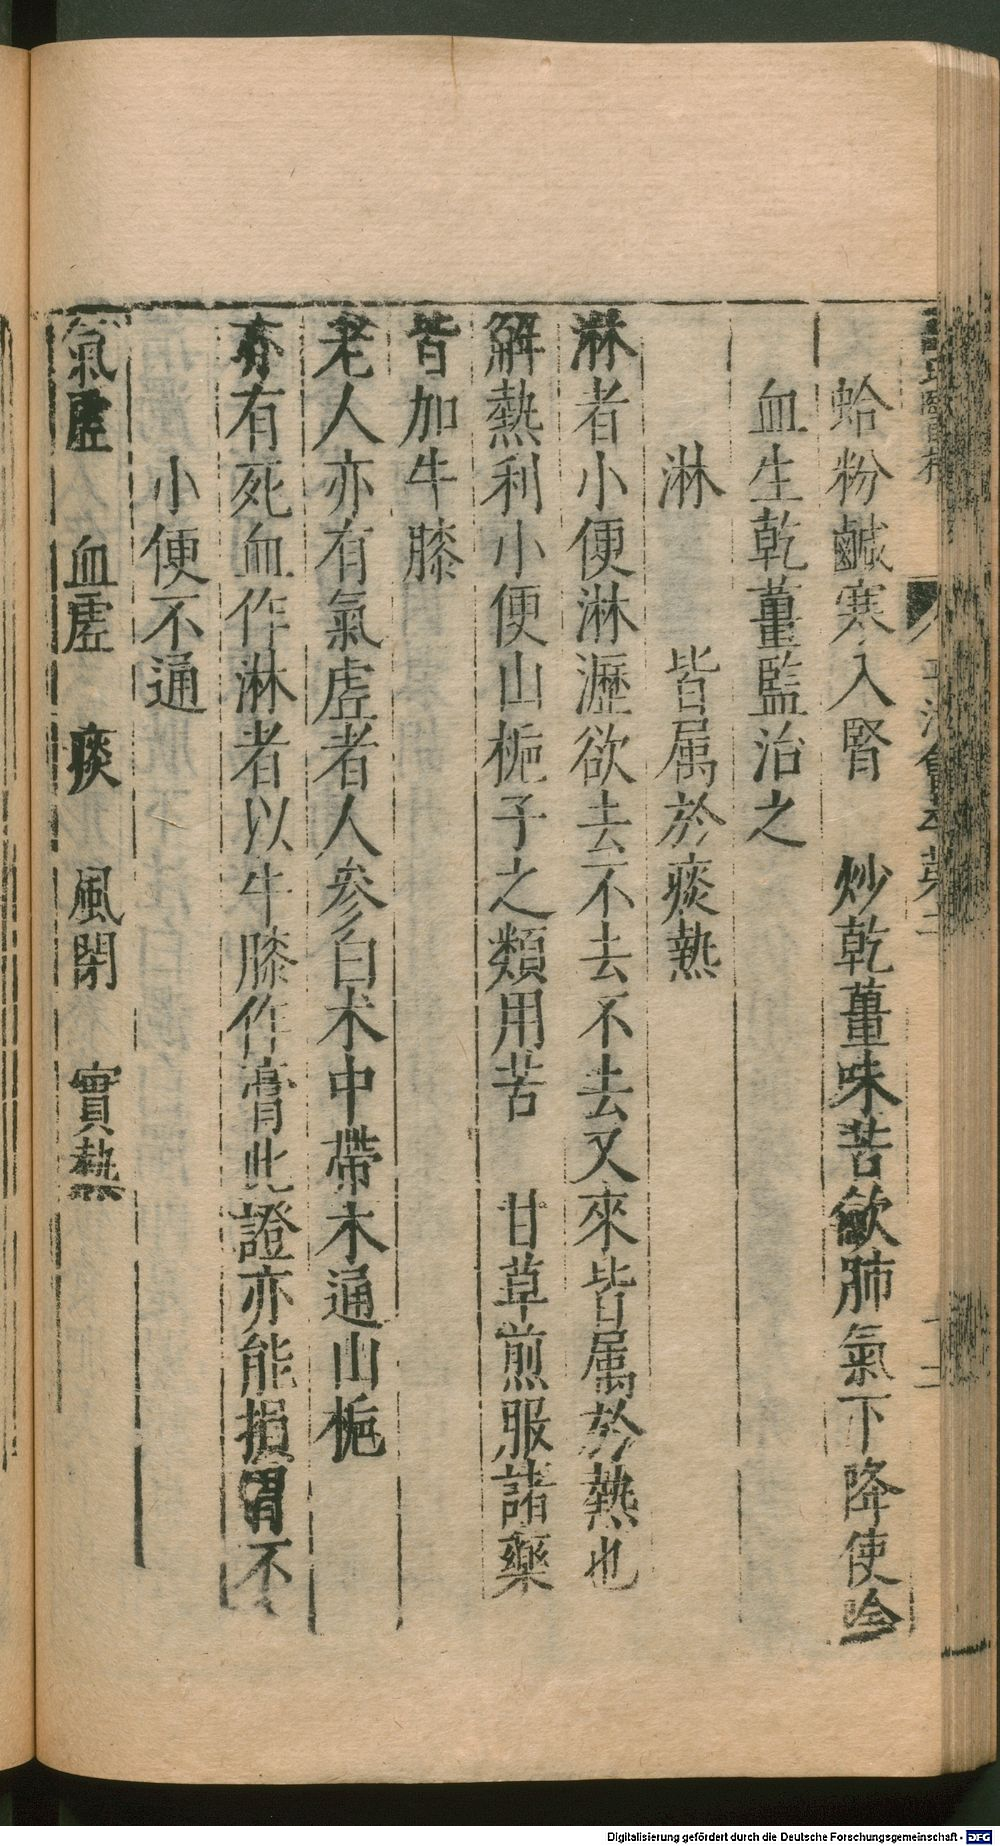 蛤粉鹹寒入腎　炒乾薑味苦斂肺氣下降使陰
血生乾薑監治之
淋　皆属於痰熱
淋者小便淋瀝欲去不去不去又來皆属於熱也
解熱利小便山梔子之類用苦　甘草煎服諸藥
皆加牛膝
老人亦有氣虚者人參白术中帶木通山梔
亦有死血作淋者以牛膝作膏此證亦能損胃不
小便不通
氣虚　血虚　痰　風閉　實熱
Digitalisierung gefördert durch die Deutsche Forschungsgemeinschaft - DFG